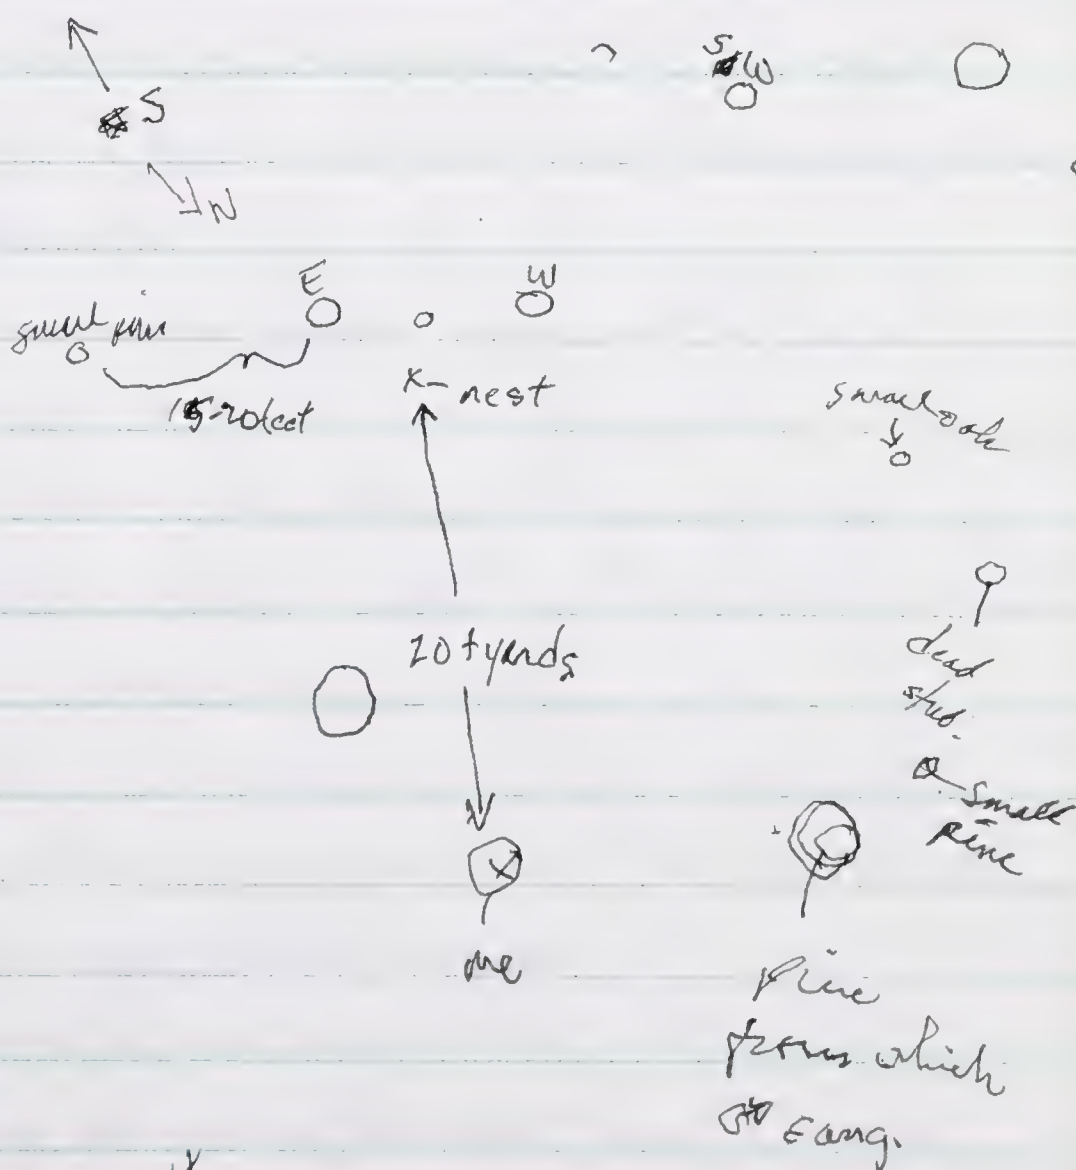 S W
S
N
E
W
small pine
x- nest
15-20 feet
small oak
20+ yards
dead
stub.
small
pine
me
Pine
from which
sang.